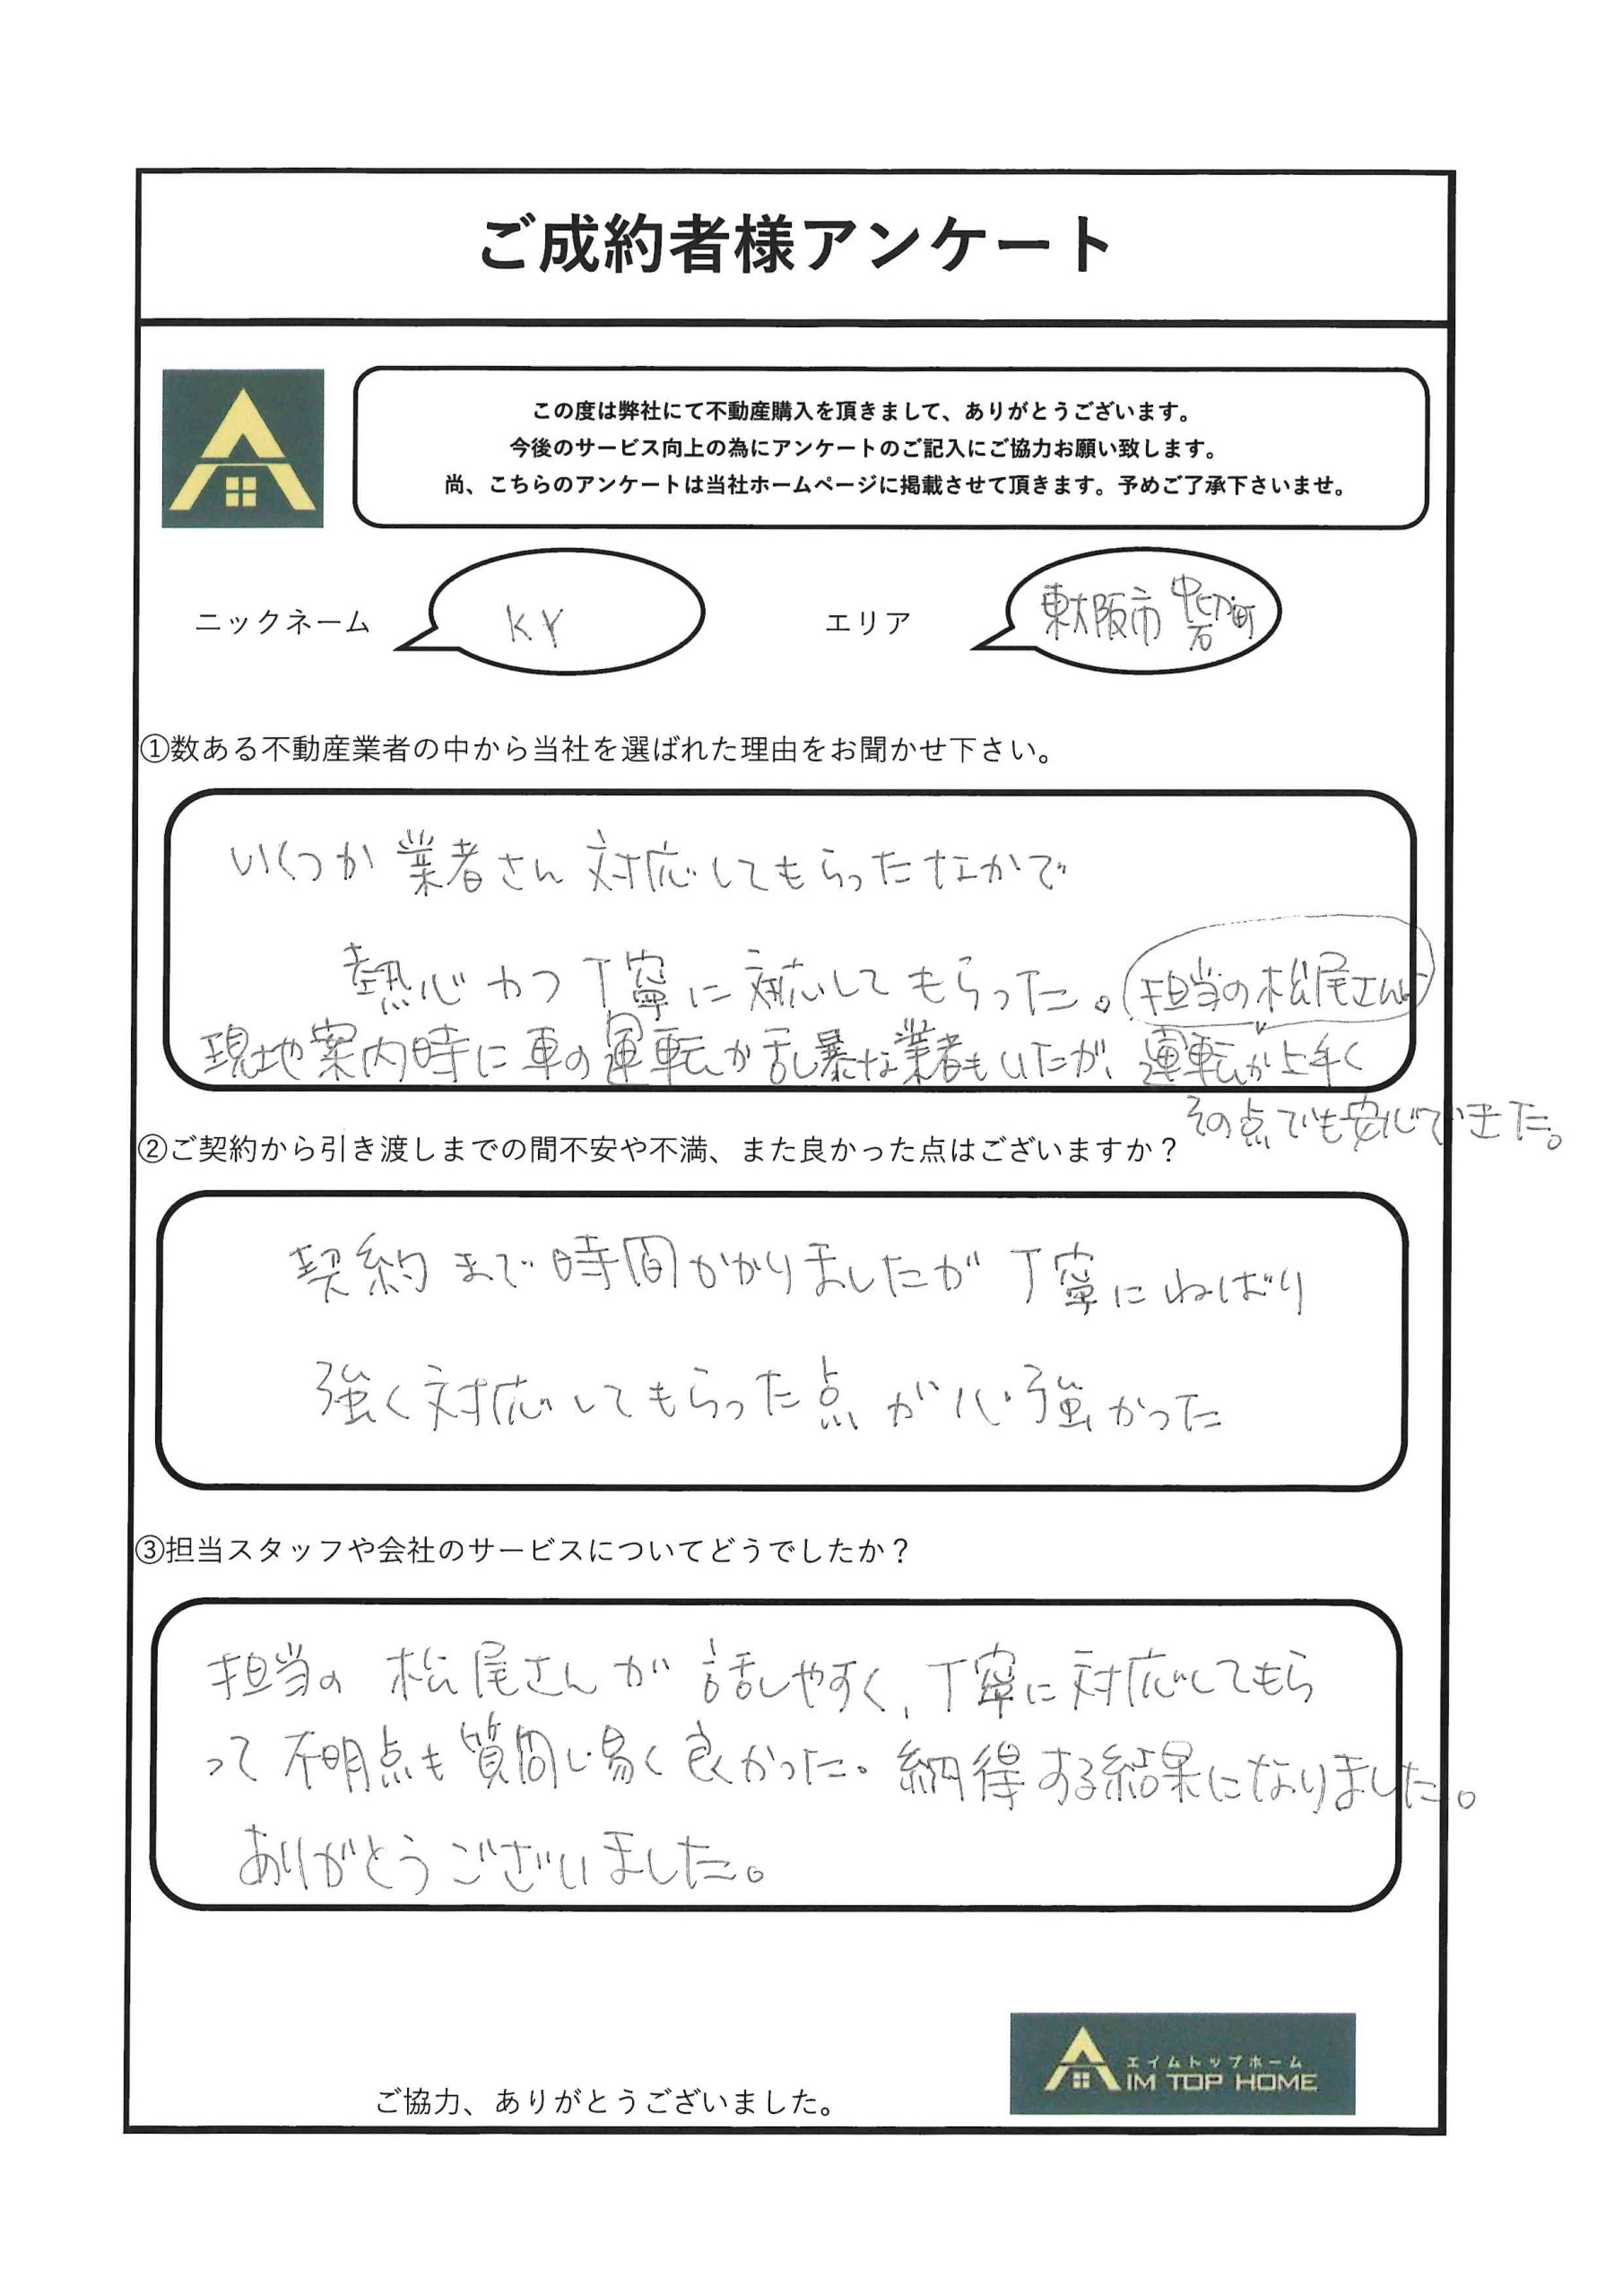 ご成約者様アンケート
この度は弊社にて不動産購入を頂きまして、ありがとうございます。
今後のサービス向上の為にアンケートのご記入にご協力お願い致します。
尚、こちらのアンケートは当社ホームページに掲載させて頂きます。予めご了承下さいませ。
ニックネーム
KY
エリア
東大阪市 中石切町
①数ある不動産業者の中から当社を選ばれた理由をお聞かせ下さい。
いくつか業者さん対応してもらったなかで
熱心かつ丁寧に対応してもらった。担当の松尾さんは
現地案内時に車の運転が乱暴な業者もいたが、運転が上手く
その点でも安心できた。
②ご契約から引き渡しまでの間不安や不満、また良かった点はございますか？
契約まで時間かかりましたが丁寧にねばり
強く対応してもらった点が心強かった
③担当スタッフや会社のサービスについてどうでしたか？
担当の松尾さんが話しやすく、丁寧に対応してもら
って不明点も質問し易く良かった。納得する結果になりました。
ありがとうございました。
エイムトップホーム
AIM TOP HOME
ご協力、ありがとうございました。